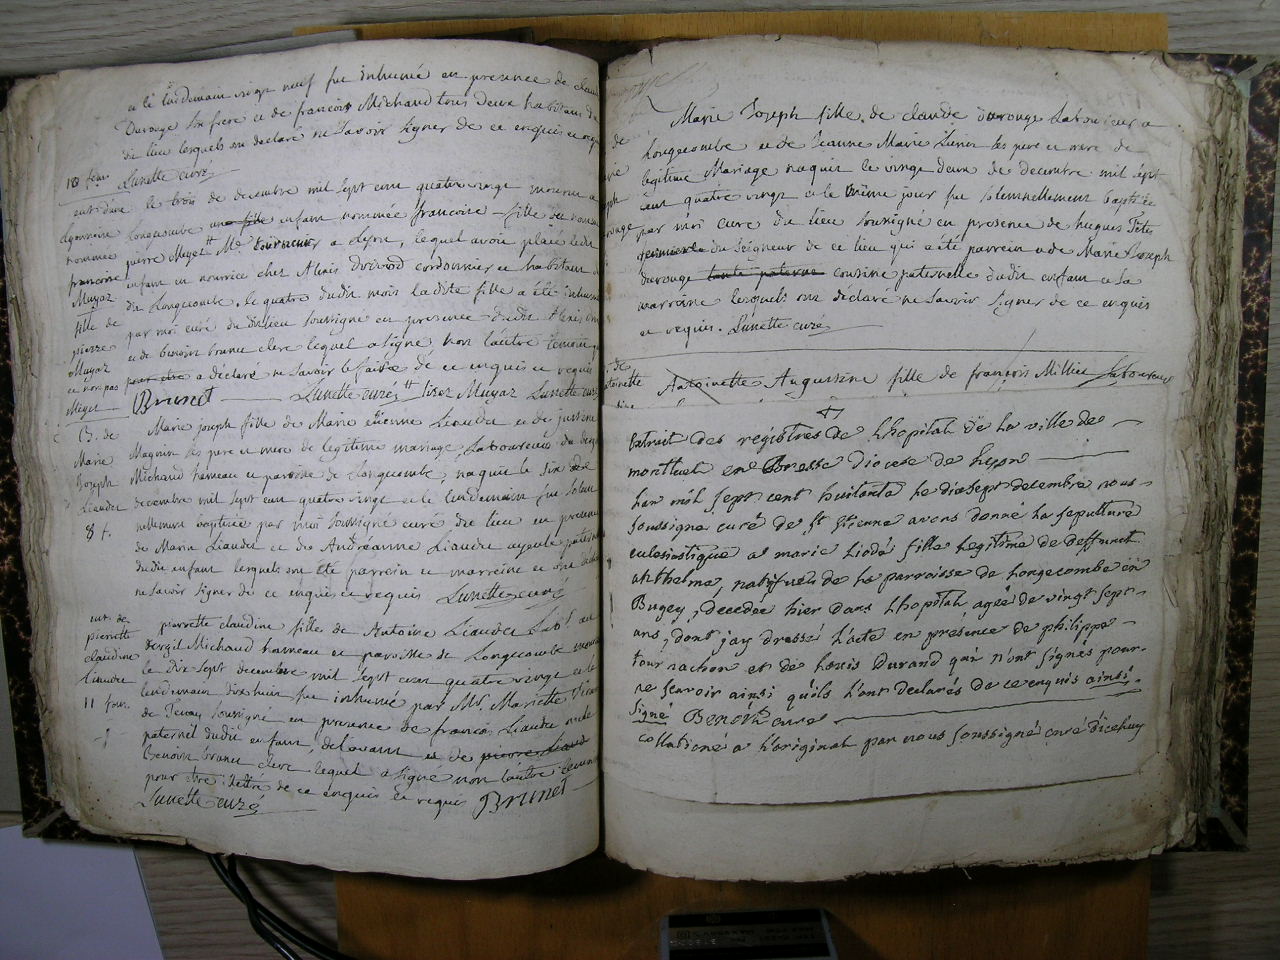 et le lendemain vingt neuf fut inhumée en presence de claude
Durouge son frere et de françois Michaud tous deux habitans du
dit lieu lesquels ont declaré ne savoir signer de ce enquis et requis
Lunette curé
le trois de decembre mil sept cent quatre vingt mourut a
Longecombe une fille enfant nommée francoise fille de
pierre Muyet a Lyon, lequel avoit placé ledit
enfant en nourrice chez Alexis cordonnier et habitant
du Longecombe, le quatre dudit mois ladite fille a été inhumée
par moi curé dudit lieu soussigné en presence dudit Alexis
et de benoit brunet clerc lequel a signé non l'autre temoin
pour etre a déclaré ne savoir le faire de ce enquis et requis
Brunet Lunette curé lisez Muyaz Lunette curé
nommée
francoise
Muyaz
fille de
pierre
Muyaz
et non pas
Meyet
B. de
Marie
Joseph
Liaudet
8 f.
Marie joseph fille de Marie étienne Liaudet et de justine
Magnin ses pere et mere de legitime mariage Laboureur du
Michaud hameau et paroisse de Longecombe, naquit le six
decembre mil sept cent quatre vingt et le lendemain fut solem
nellement baptisée par moi soussigné curé du lieu en presence
de Marin Liaudet et de Andréanne Liaudet ayeule paternelle
dudit enfant lesquels ont été parrein et marreine et ont déclaré
ne savoir signer de ce enquis et requis Lunette curé
ent. de
pierrette
claudine
Liaudet
11 four.
pierrette claudine fille de Antoine Liaudet Lab.r au
vergil Michaud hameau et paroisse de Longecombe mourut
le dix sept decembre mil sept cent quatre vingt et le
lendemain dixhuit fut inhumée par Mr. Mariette vicaire
de Tenay soussigné en presence de francois Liaudet oncle
paternel dudit enfant, delavant et de pierre Liaud
Benoit brunet clerc lequel a signé non l'autre temoin
pour etre illetré de ce enquis et requis Brunet
Lunette curé
Marie Joseph fille de claude durouge laboureur a
Longecombe et de Jeanne Marie ses pere et mere de
legitime Mariage naquit le vingt deux de decembre mil sept
cent quatre vingt et le même jour fut solemnellement baptisée
par moi curé du lieu soussigné en presence de hugues
du seigneur de ce lieu qui a été parrein et de Marie Joseph
durouge tante paterne cousine paternelle dudit enfant et sa
marraine lesquels ont déclaré ne savoir signer de ce enquis
et requis. Lunette curé
Antoinette Augustine fille de françois Millieu laboureur
Extrait des registres de Lhopital de La ville de
montluel en Bresse Diocese de Lyon
Lan mil sept cent huitante Le dixsept decembre nous
soussigné curé de St Etienne avons donné La sepulture
eclesiastique a marie Liodé fille Legitime de deffunct
Anthelme, natifve de La parroisse de Longecombe en
Bugey, decedée hier dans Lhopital agée de vingt sept
ans, dont jay dressé L'acte en présence de philippe
tournachon et de Louis Durand qui n'ont signés pour
ne scavoir ainsi quils L'ont declarés de ce enquis ainsi
signé Benoit curé
collationé a Loriginal par nous soussigné curé dicelluy